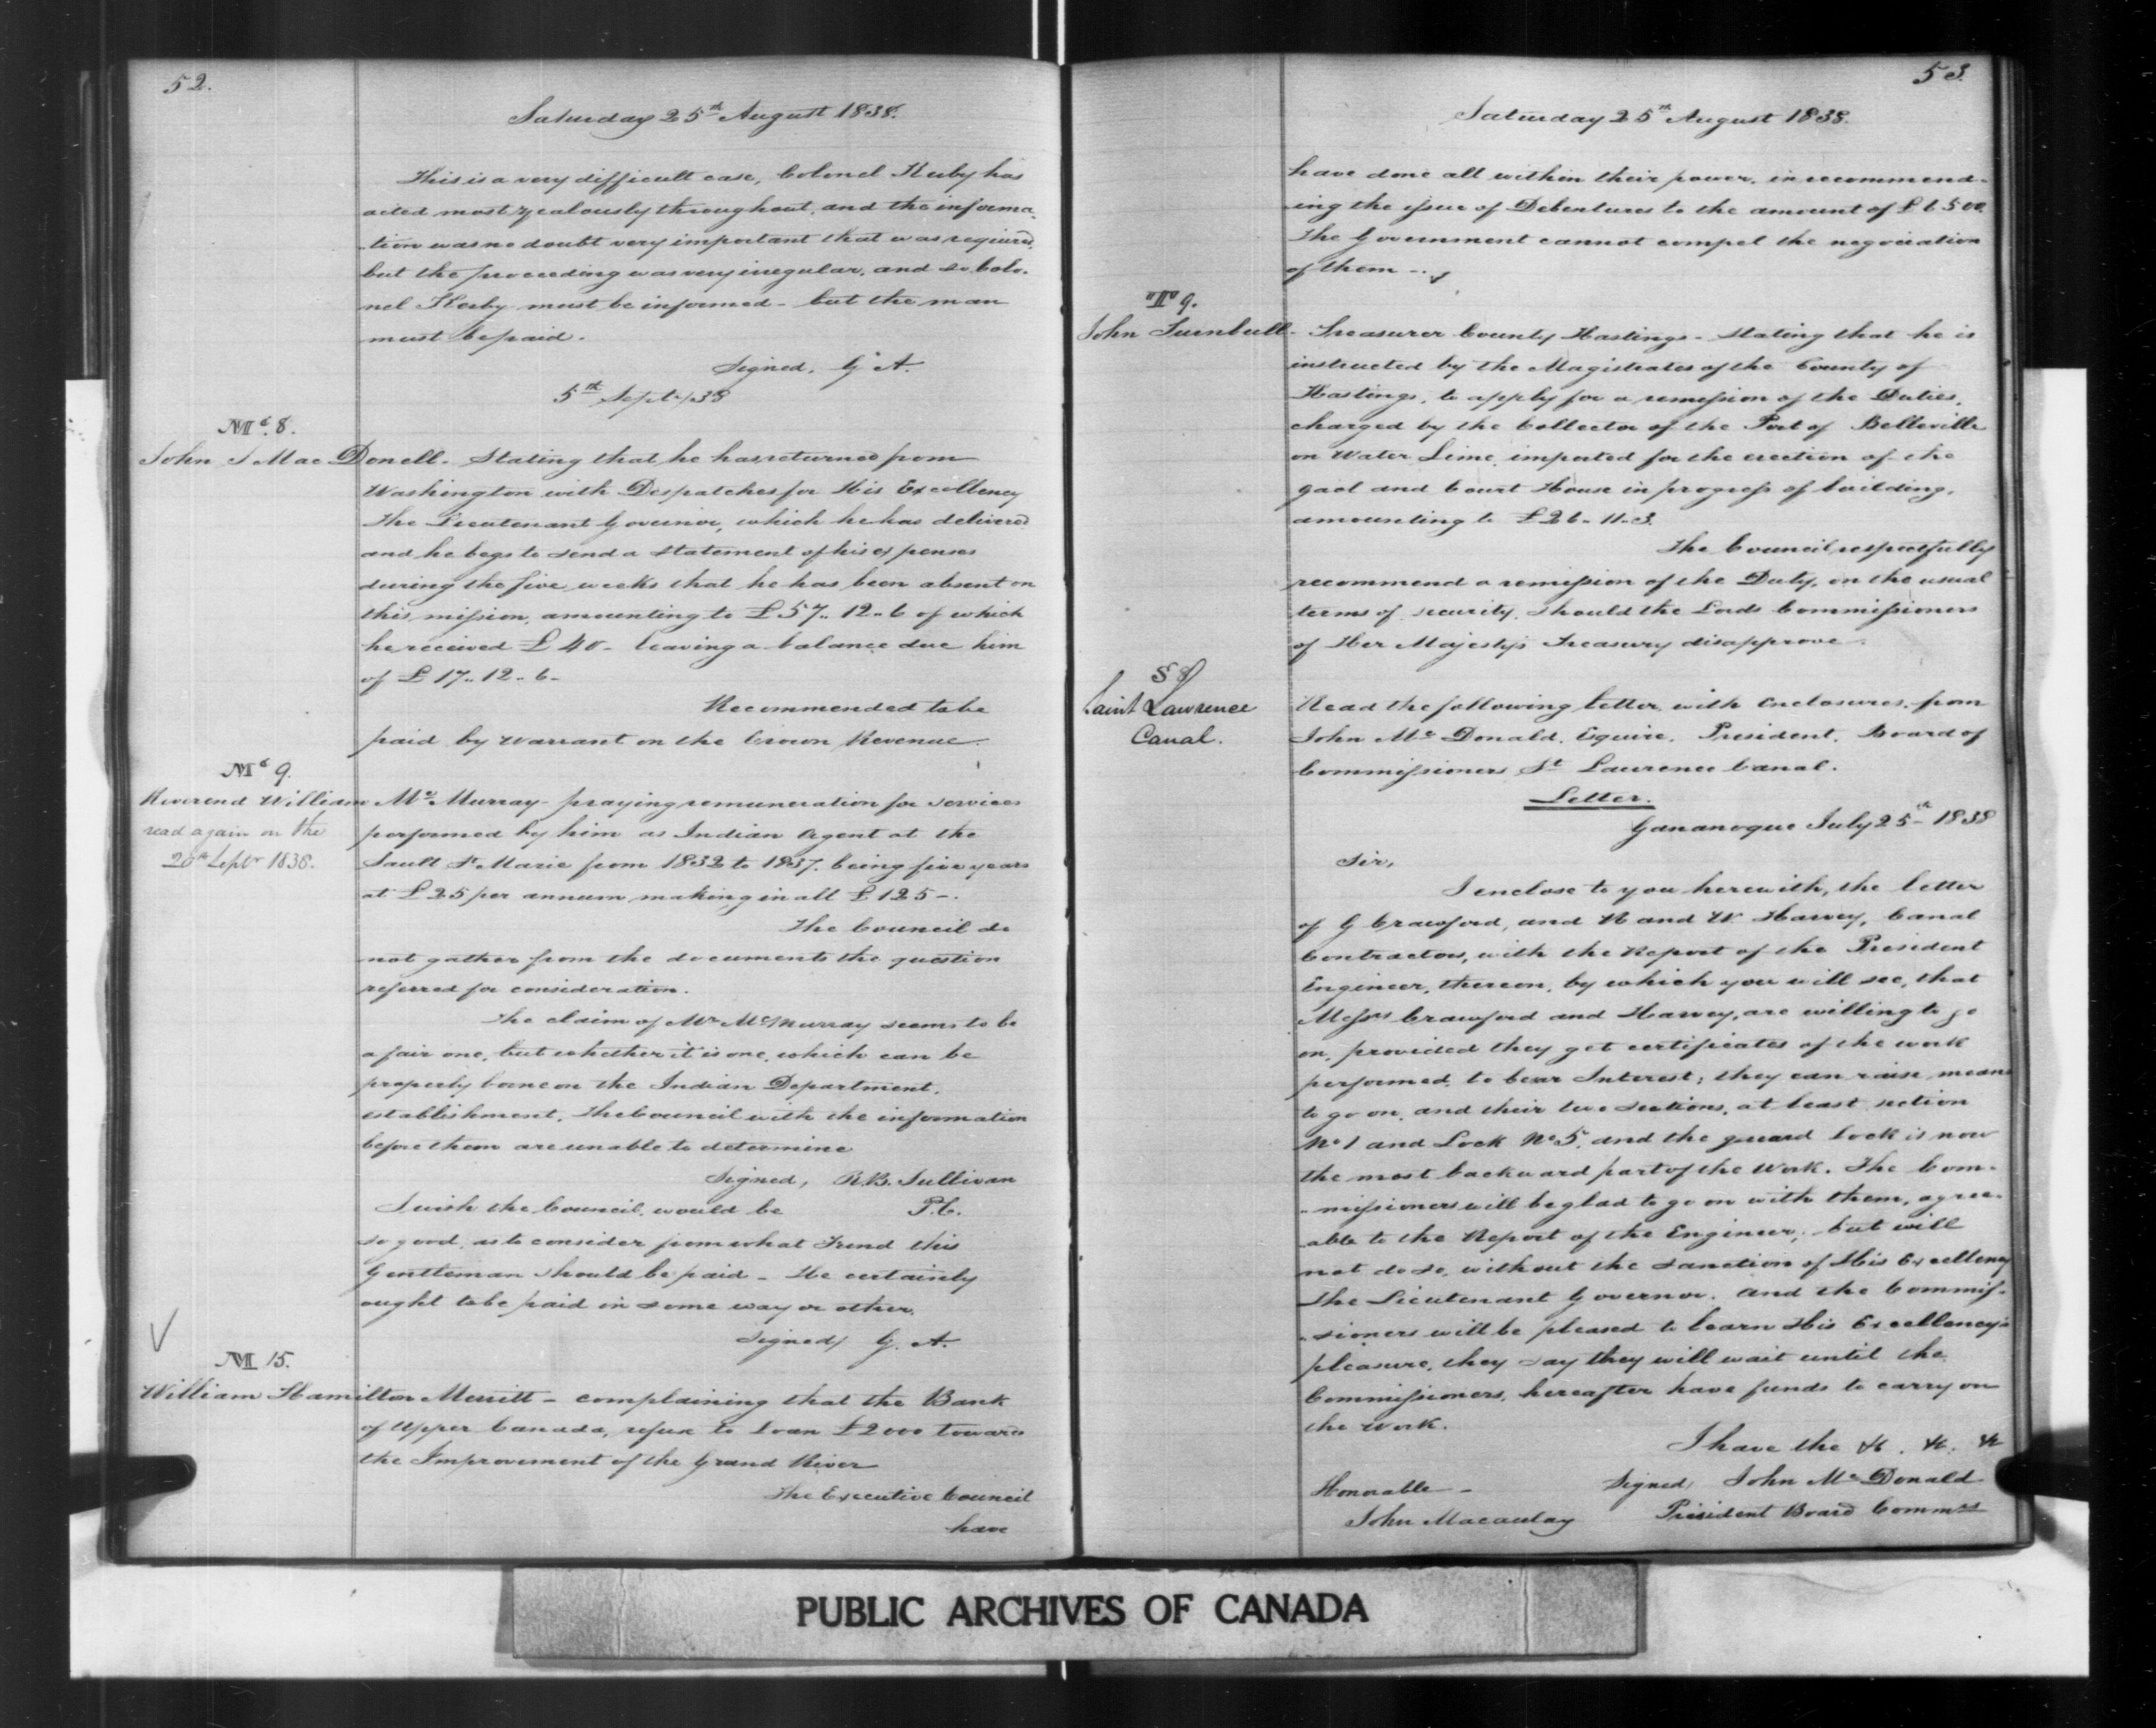 52.
Saturday 25th August 1838.
This is a very difficult case, Colonel Kerby has
acted most zealously throughout, and the informa-
-tion was no doubt very important that was required,
but the proceeding was very irregular, and so Colo-
nel Kerby must be informed - but the man
must be paid.
Signed, G. A.
5th Sept. /38
Mc. 8.
John J MacDonell - Stating that he has returned from
Washington with Despatches for His Excellency
The Lieutenant Governor, which he has delivered
and he begs to send a statement of his expenses
during the five weeks that he has been absent on
this mission, amounting to £57..12..6 of which
he received £40 - leaving a balance due him
of £17..12..6-
Recommended to be
paid by Warrant on the Crown Revenue.
Mc 9.
Reverend William McMurray - praying remuneration for services
read again on the
20th Septr 1838.
performed by him as Indian Agent at the
Sault St Marie from 1832 to 1837. being five years
at £25 per annum making in all £125-.
The Council do
not gather from the documents the question
referred for consideration.
The claim of Mr McMurray seems to be
a fair one, but whether it is one, which can be
properly borne on the Indian Department,
establishment, The Council with the information
before them are unable to determine
Signed, R.B. Sullivan
P.C.
I wish the Council, would be
so good, as to consider from what Fund this
Gentleman should be paid - He certainly
ought to be paid in some way or other.
Signed, G. A.
M 15.
William Hamilton Merritt - complaining that the Bank
of Upper Canada, refuse to Loan £2000 towards
the Improvement of the Grand River
The Executive Council
have
53.
Saturday 25th August 1838.
have done all within their power, in recommend-
-ing the issue of Debentures to the amount of £6500.
The Government cannot compel the negociation
of them -.
"T" 9.
John Turnbull - Treasurer County Hastings - Stating that he is
instructed by the Magistrates of the County of
Hastings, to apply for a remission of the Duties,
charged by the Collector of the Port of Belleville
on Water Lime, imported for the erection of the
gaol and Court House in progress of building,
amounting to £26-11-3.
The Council respectfully
recommend a remission of the Duty, on the usual
terms of security, should the Lords Commissioners
of Her Majesty's Treasury disapprove.
S 8
Saint Lawrence
Canal.
Read the following letter, with Enclosures, from
John Mc Donald, Esquire, President, Board of
Commissioners St Lawrence Canal.
Letter.
Gananoque July 25th 1838
Sir,
I enclose to you herewith, the letter
of G Crawford, and R and W. Harvey, Canal
Contractors, with the Report of the President
Engineer, thereon, by which you will see, that
Messrs Crawford and Harvey, are willing to go
on, provided they get certificates of the work
performed, to bear Interest; they can raise means
to go on, and their two sections, at least section
No 1 and Lock No 5. and the guard lock is now
the most backward part of the Work. The Com-
-missioners will be glad to go on with them, agree-
-able to the Report of the Engineer; but will
not do so, without the sanction of His Excellency
The Lieutenant Governor. And the Commis-
-sioners will be pleased to learn His Excellency's
pleasure, they say they will wait until the
Commissioners, hereafter have funds to carry on
the Work.
I have the &c. &c. &c
Signed, John Mc Donald
President Board Commrs
Honorable -
John Macaulay
PUBLIC ARCHIVES OF CANADA